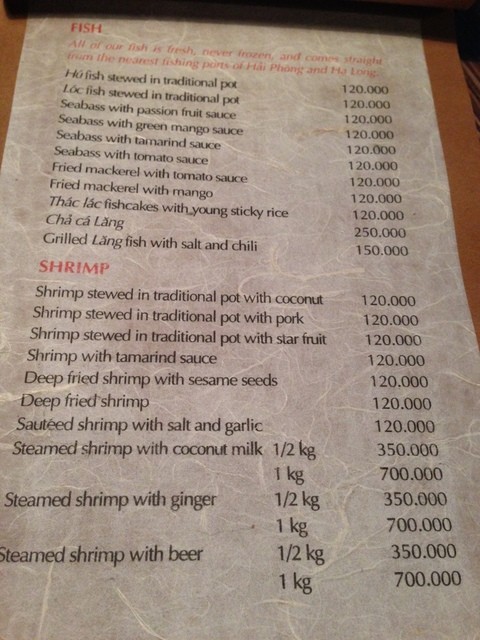 FISH
All of our fish is fresh, never frozen, and comes straight
from the nearest fishing ports of Hải Phòng and Hạ Long.
Hú fish stewed in traditional pot 120.000
Lóc fish stewed in traditional pot 120.000
Seabass with passion fruit sauce 120.000
Seabass with green mango sauce 120.000
Seabass with tamarind sauce 120.000
Seabass with tomato sauce 120.000
Fried mackerel with tomato sauce 120.000
Fried mackerel with mango 120.000
Thác lác fishcakes with young sticky rice 120.000
Chả cá Lăng 250.000
Grilled Lăng fish with salt and chili 150.000
SHRIMP
Shrimp stewed in traditional pot with coconut 120.000
Shrimp stewed in traditional pot with pork 120.000
Shrimp stewed in traditional pot with star fruit 120.000
Shrimp with tamarind sauce 120.000
Deep fried shrimp with sesame seeds 120.000
Deep fried shrimp 120.000
Sautéed shrimp with salt and garlic 120.000
Steamed shrimp with coconut milk 1/2 kg 350.000
1 kg 700.000
Steamed shrimp with ginger 1/2 kg 350.000
1 kg 700.000
Steamed shrimp with beer 1/2 kg 350.000
1 kg 700.000